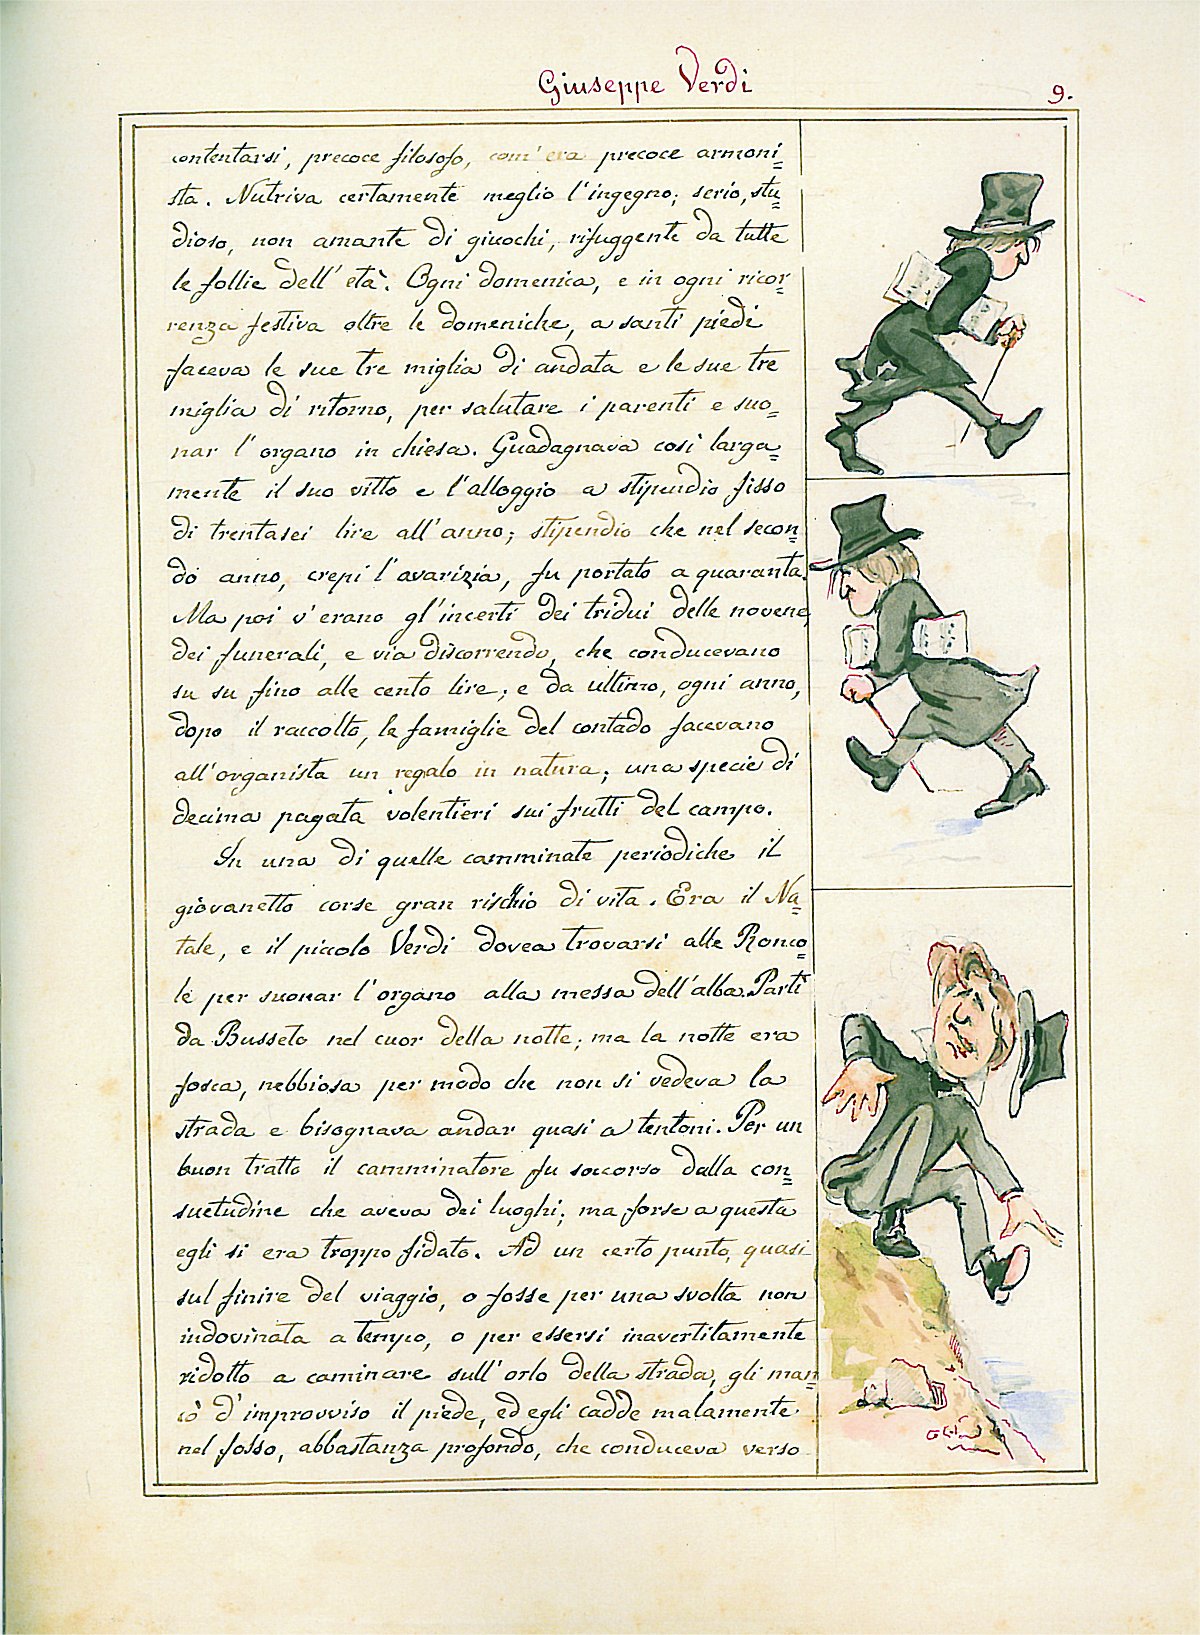 Giuseppe Verdi
9.
contentarsi, precoce filosofo, com'era precoce armoni=
sta. Nutriva certamente meglio l'ingegno; serio, stu=
dioso, non amante di giuochi, rifuggente da tutte
le follie dell'età. Ogni domenica, e in ogni ricor=
renza festiva oltre le domeniche, a santi piedi
faceva le sue tre miglia di andata e le sue tre
miglia di ritorno, per salutare i parenti e suo=
nar l'organo in chiesa. Guadagnava così larga=
mente il suo vitto e l'alloggio a stipendio fisso
di trentasei lire all'anno; stipendio che nel secon=
do anno, crepi l'avarizia, fu portato a quaranta.
Ma poi v'erano gl'incerti dei tridui delle novene,
dei funerali, e via discorrendo, che conducevano
su su fino alle cento lire; e da ultimo, ogni anno,
dopo il raccolto, le famiglie del contado facevano
all'organista un regalo in natura; una specie di
decima pagata volentieri sui frutti del campo.
In una di quelle camminate periodiche il
giovanetto corse gran rischio di vita. Era il Na=
tale, e il piccolo Verdi dovea trovarsi alle Ronco=
le per suonar l'organo alla messa dell'alba. Partì
da Busseto nel cuor della notte; ma la notte era
fosca, nebbiosa per modo che non si vedeva la
strada e bisognava andar quasi a tentoni. Per un
buon tratto il camminatore fu soccorso dalla con=
suetudine che aveva dei luoghi; ma forse a questa
egli si era troppo fidato. Ad un certo punto, quasi
sul finire del viaggio, o fosse per una svolta non
indovinata a tempo, o per essersi inavertitamente
ridotto a caminare sull'orlo della strada, gli man=
cò d'improvviso il piede, ed egli cadde malamente
nel fosso, abbastanza profondo, che conduceva verso